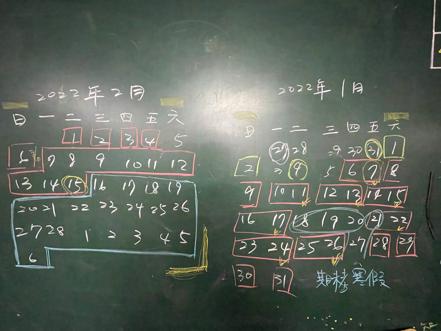 2022年2月
日 一 二 三 四 五 六
1 2 3 4 5
6 7 8 9 10 11 12
13 14 15 16 17 18 19
20 21 22 23 24 25 26
27 28 1 2 3 4 5
6
2022年1月
日 一 二 三 四 五 六
28 30 31 1
2 6 7 8
9 10 11 12 13 14 15
16 17 18 19 20 21 22
23 24 25 26 27 28 29
30 31 期末 寒假